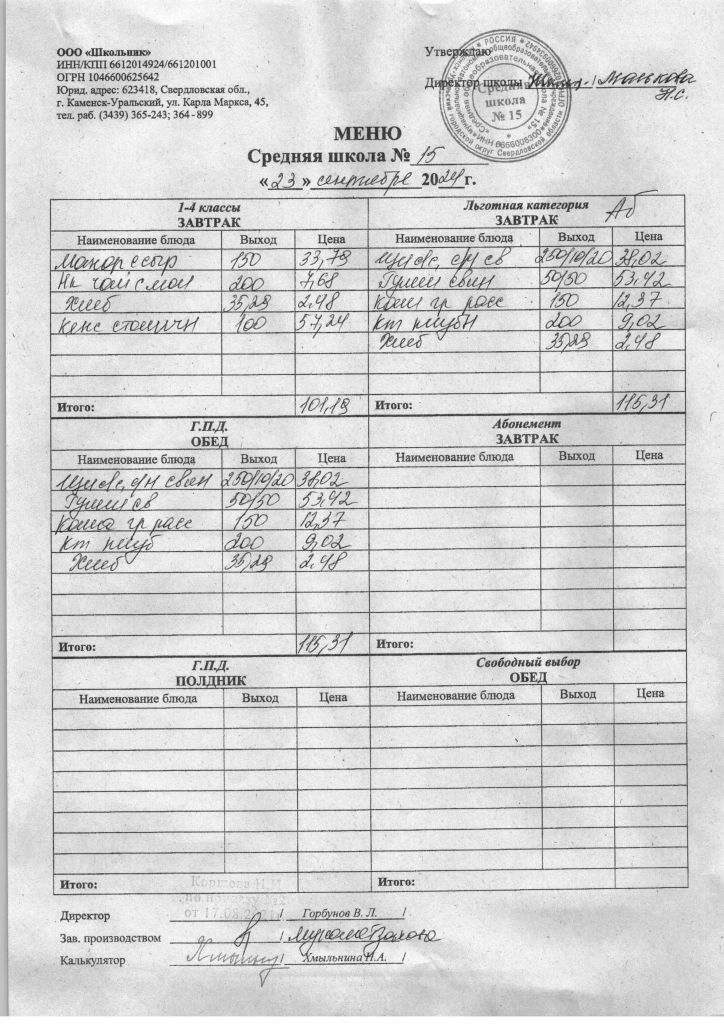 ООО «Школьник»
ИНН/КПП 6612014924/661201001
ОГРН 1046600625642
Юрид. адрес: 623418, Свердловская обл.,
г. Каменск-Уральский, ул. Карла Маркса, 45,
тел. раб. (3439) 365-243; 364 - 899
Утверждаю
Директор школы / Манькова
Н.С.
Средняя
школа
№ 15
МЕНЮ
Средняя школа № 15
« 23 » сентября 2024 г.
1-4 классы
ЗАВТРАК
Наименование блюда Выход Цена
Макор с сыр 150 33,79
Нк чай с мол 200 7,68
Хлеб 35,29 2,48
Кекс столичн 100 57,24
Итого: 101,19
Льготная категория Аб
ЗАВТРАК
Наименование блюда Выход Цена
св 250/10/20 38,02
Гуляш свин 50/50 53,42
Каша гр расс 150 12,37
200 9,02
Хлеб 35,29 2,48
Итого: 115,31
Г.П.Д.
ОБЕД
Наименование блюда Выход Цена
свин 250/10/20 38,02
Гуляш св 50/50 53,42
Каша гр расс 150 12,37
200 9,02
Хлеб 35,29 2,48
Итого: 115,31
Абонемент
ЗАВТРАК
Наименование блюда Выход Цена
Итого:
Г.П.Д.
ПОЛДНИК
Наименование блюда Выход Цена
Итого:
Свободный выбор
ОБЕД
Наименование блюда Выход Цена
Итого:
по приказу
от 17.08.
Директор / Горбунов В. Л. /
Зав. производством /
Калькулятор / Хмыльнина Н.А. /